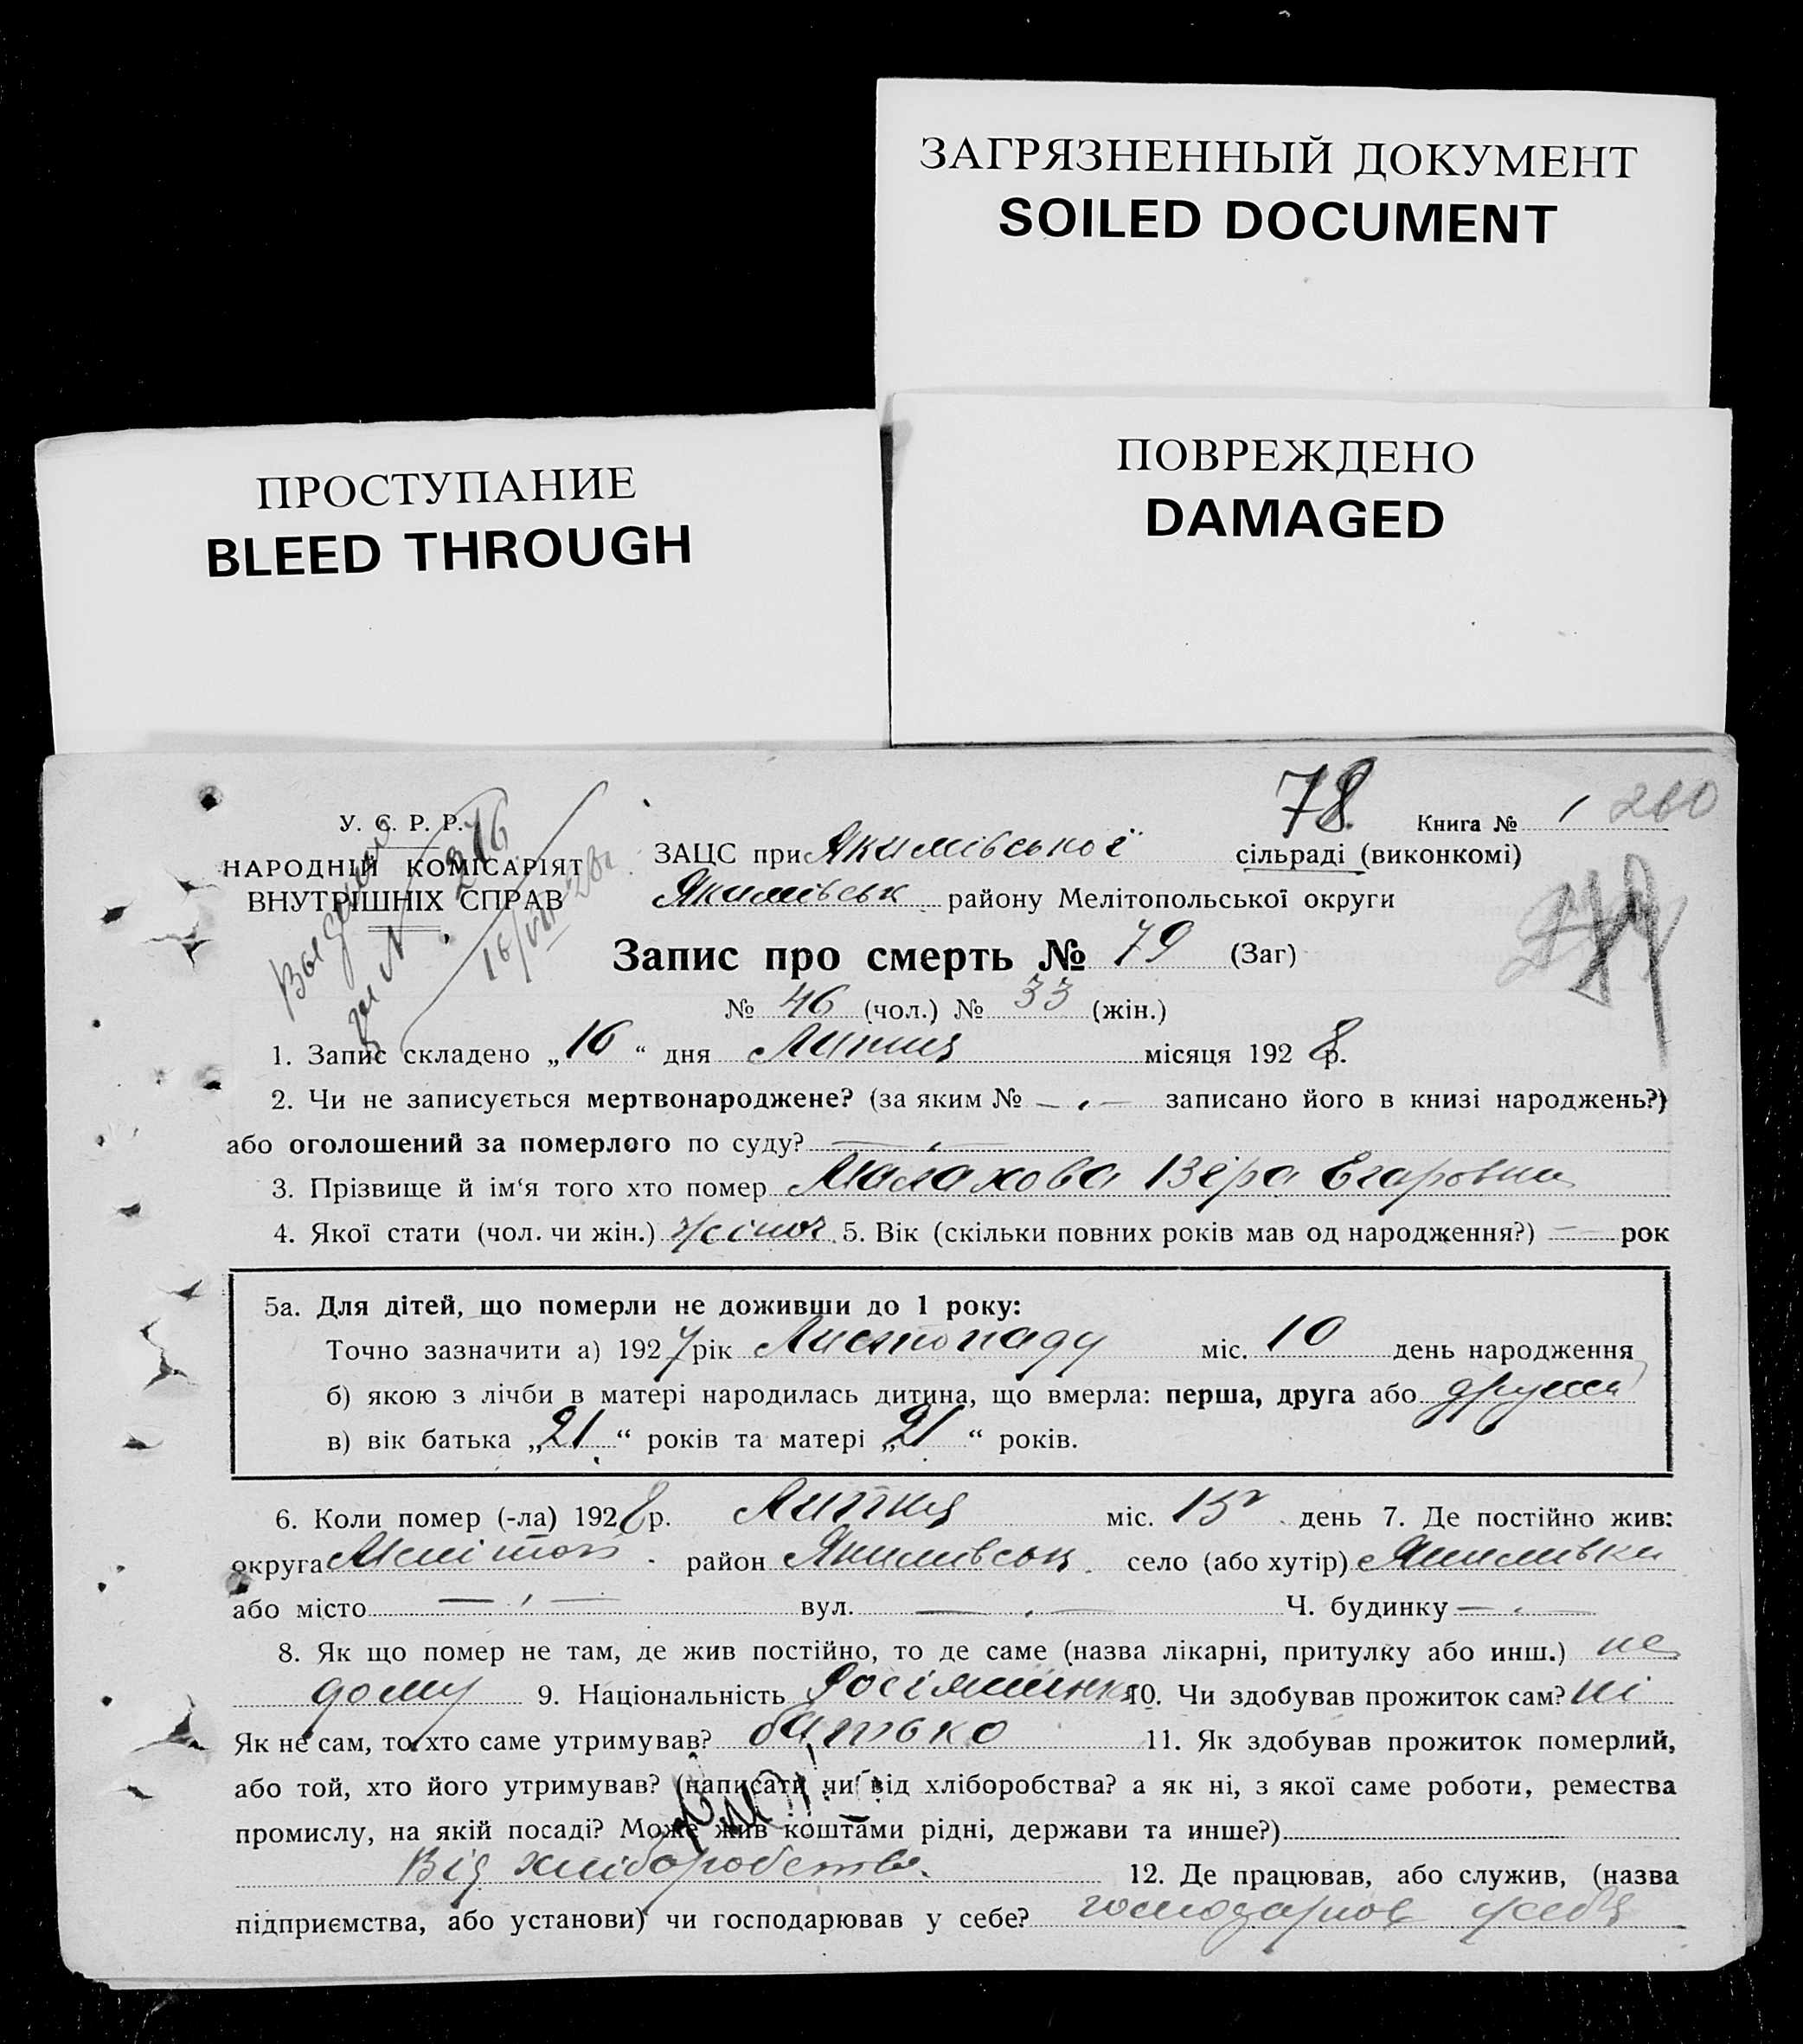 ЗАГРЯЗНЕННЫЙ ДОКУМЕНТ
SOILED DOCUMENT
ПОВРЕЖДЕНО
DAMAGED
ПРОСТУПАНИЕ
BLEED THROUGH
78
Книга № 1 260
У. С. Р. Р.
НАРОДНІЙ КОМІСАРІЯТ
ВНУТРІШНІХ СПРАВ
за № 2876
16/VII 28г
ЗАЦС при Якимівської сільраді (виконкомі)
Якимівськ району Мелітопольської округи
Запис про смерть № 79 (Заг)
№ 46 (чол.) № 33 (жін.)
1. Запис складено „16“ дня Липня місяця 1928 р.
2. Чи не записується мертвонароджене? (за яким № — записано його в книзі народжень?)
або оголошений за померлого по суду? —
3. Прізвище й ім'я того хто помер Малахова Віра Егаровна
4. Якої стати (чол. чи жін.) жіноч. 5. Вік (скільки повних років мав од народження?) — рок
5а. Для дітей, що померли не доживши до 1 року:
Точно зазначити а) 1927 рік Листопаду міс. 10 день народження
б) якою з лічби в матері народилась дитина, що вмерла: перша, друга або
в) вік батька „21“ років та матері „21“ років.
6. Коли помер (-ла) 1928 р. Липня міс. 15 день 7. Де постійно жив:
округа Меліtоп. район Якимівськ. село (або хутір) Якимівка
або місто — вул. — Ч. будинку —
8. Як що помер не там, де жив постійно, то де саме (назва лікарні, притулку або инш.)
дому 9. Національність 10. Чи здобував прожиток сам? ні
Як не сам, то хто саме утримував? батько 11. Як здобував прожиток померлий,
або той, хто його утримував? (написати чи від хліборобства? а як ні, з якої саме роботи, ремества
промислу, на якій посаді? Може жив коштами рідні, держави та инше?)
Від хліборобства. 12. Де працював, або служив, (назва
підприємства, або установи) чи господарював у себе?